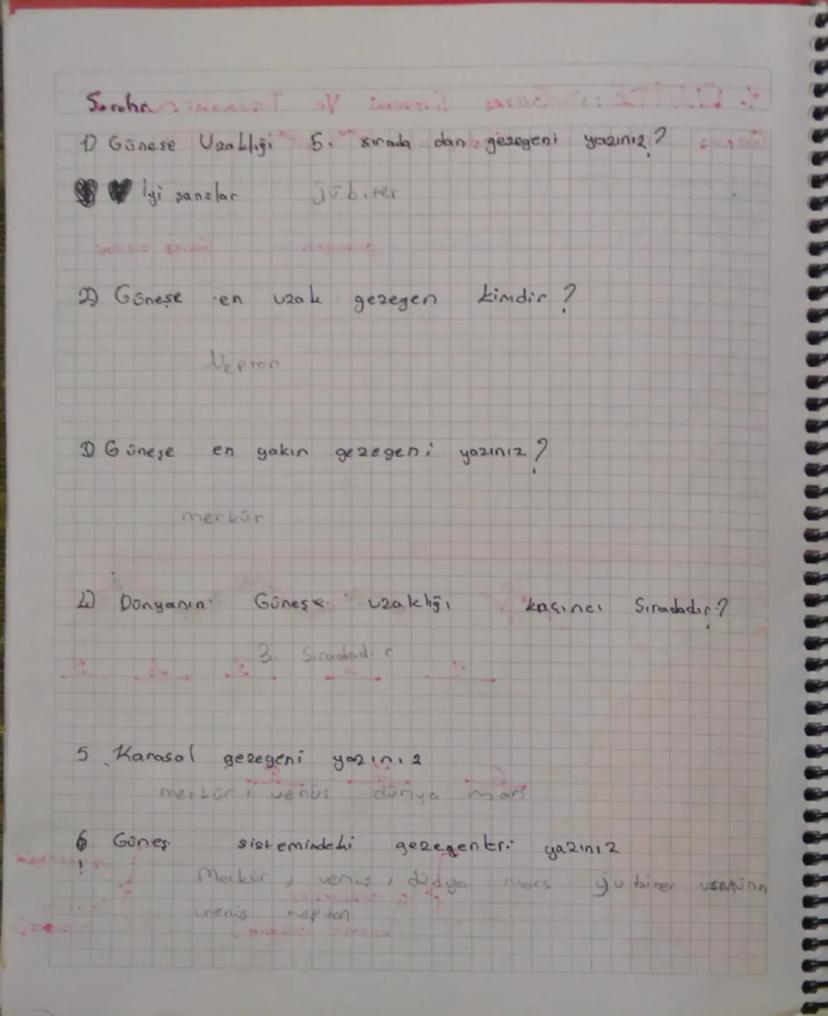 1) Güneşe Uzaklığı 5. sırada dan gezegeni yazınız?
İyi şanslar jübiter
2) Güneşe en uzak gezegen kimdir?
Nepton
3) Güneşe en yakın gezegeni yazınız?
merkür
4) Dünyanın Güneşe uzaklığı kaçıncı Sıradadır?
3. Sıradadır
5 Karasal gezegeni yazınız
merkür, venüs dünya mars
6 Güneş sistemindeki gezegenleri yazınız
Merkür, venüs, dünya mars
nepton